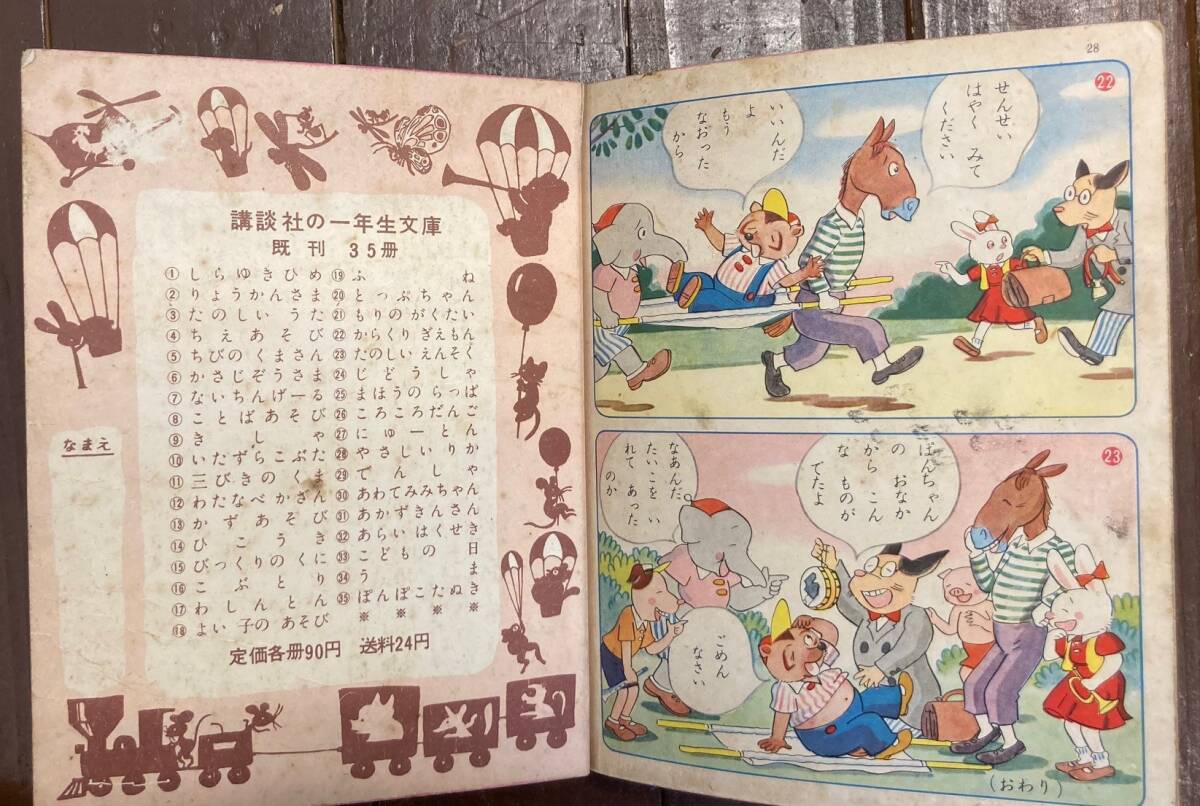 講談社の一年生文庫
既刊 35冊
①しらゆきひめ
②りょうかんさま
③たのしい うた
④ちえあそび
⑤ちびの くまさん
⑥かさじぞうさま
⑦ないちんげーる
⑧ことばあそび
⑨きしゃ
⑩いたずらこぶた
⑪三びきの くま
⑫わたなべ かざん
⑬かずあそび
⑭ひこうき
⑮びっくりの くに
⑯こぶとり
⑰わしんとん
⑱よい子の あそび
⑲ふね
⑳とっぷちゃん
㉑もりの がくたい
㉒からくり ぎえもん
㉓たのしい えんそく
㉔じどうしゃ
㉕まほうの らっぱ
㉖ころころだんご
㉗にゅーとん
㉘やさしい りか
㉙でんしゃ
㉚あわてみみちゃん
㉛あかずきんさん
㉜あらい はくせき
㉝こどもの 日
㉞うま
㉟ぽんぽこたぬき
※ ※ ※ ※
定価各冊90円 送料24円
なまえ
28
22
せんせい
はやく みて
ください
いいんだ
よ
もう
なおった
から
23
ぽんちゃん
の おなか
から こん
な ものが
でたよ
なあんだ
たいこを い
れて あった
のか
ごめん
なさい
(おわり)